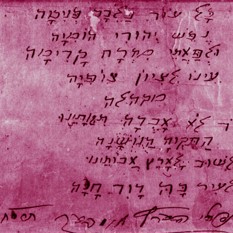 ל עוד בלבב פנימה
נפש יהודי הומיה
ולפאתי מזרח קדימה
עינו לציון צופיה
מקהלה
לא אבדה תקותנו
התקוה הנושנה
לשוב לארץ אבותינו
לעיר בה דוד חנה